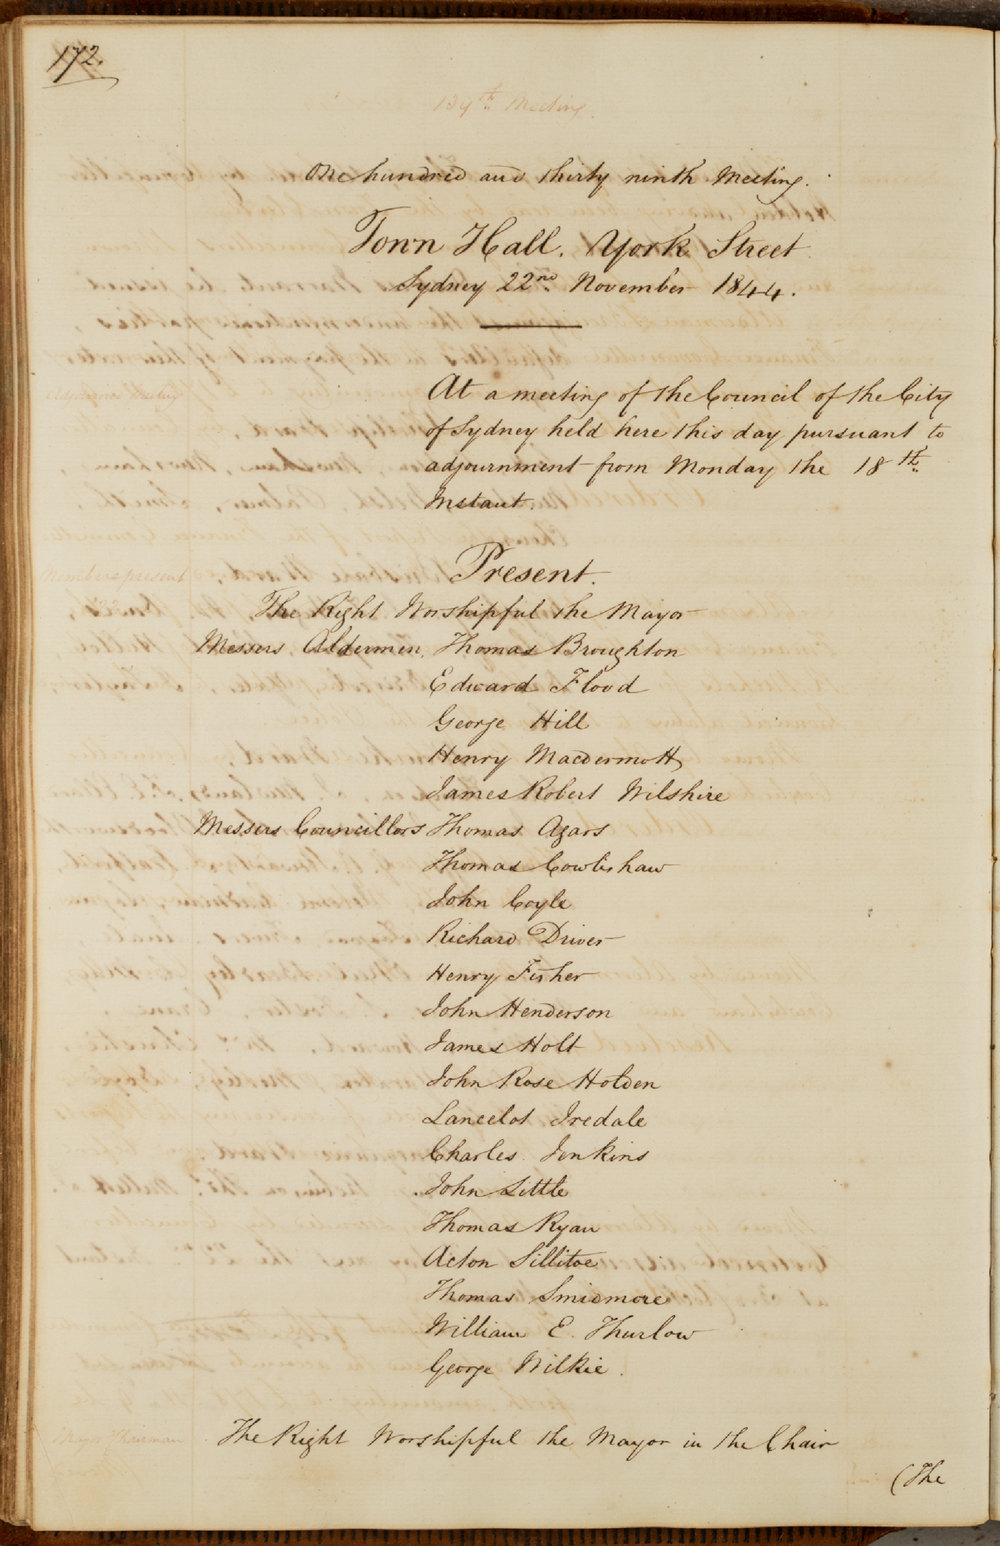 172.
139th Meeting.
One hundred and thirty ninth Meeting.
Town Hall. York Street.
Sydney 22nd November 1844.
Adjourned Meeting
At a meeting of the Council of the City
of Sydney held here this day pursuant to
adjournment from Monday the 18th
Instant.
Members present
Present.
The Right Worshipful the Mayor
Messers Aldermen, Thomas Broughton
Edward Flood
George Hill
Henry Macdermott
James Robert Wilshire
Messers Councillors Thomas Agars
Thomas Cowlishaw
John Coyle
Richard Driver
Henry Fisher
John Henderson
James Holt
John Rose Holden
Lancelot Iredale
Charles Jenkins
John Little
Thomas Ryan
Acton Sillitoe
Thomas Smidmore
William E. Thurlow
George Wilkie.
Chairman
The Right Worshipful the Mayor in the Chair
(The